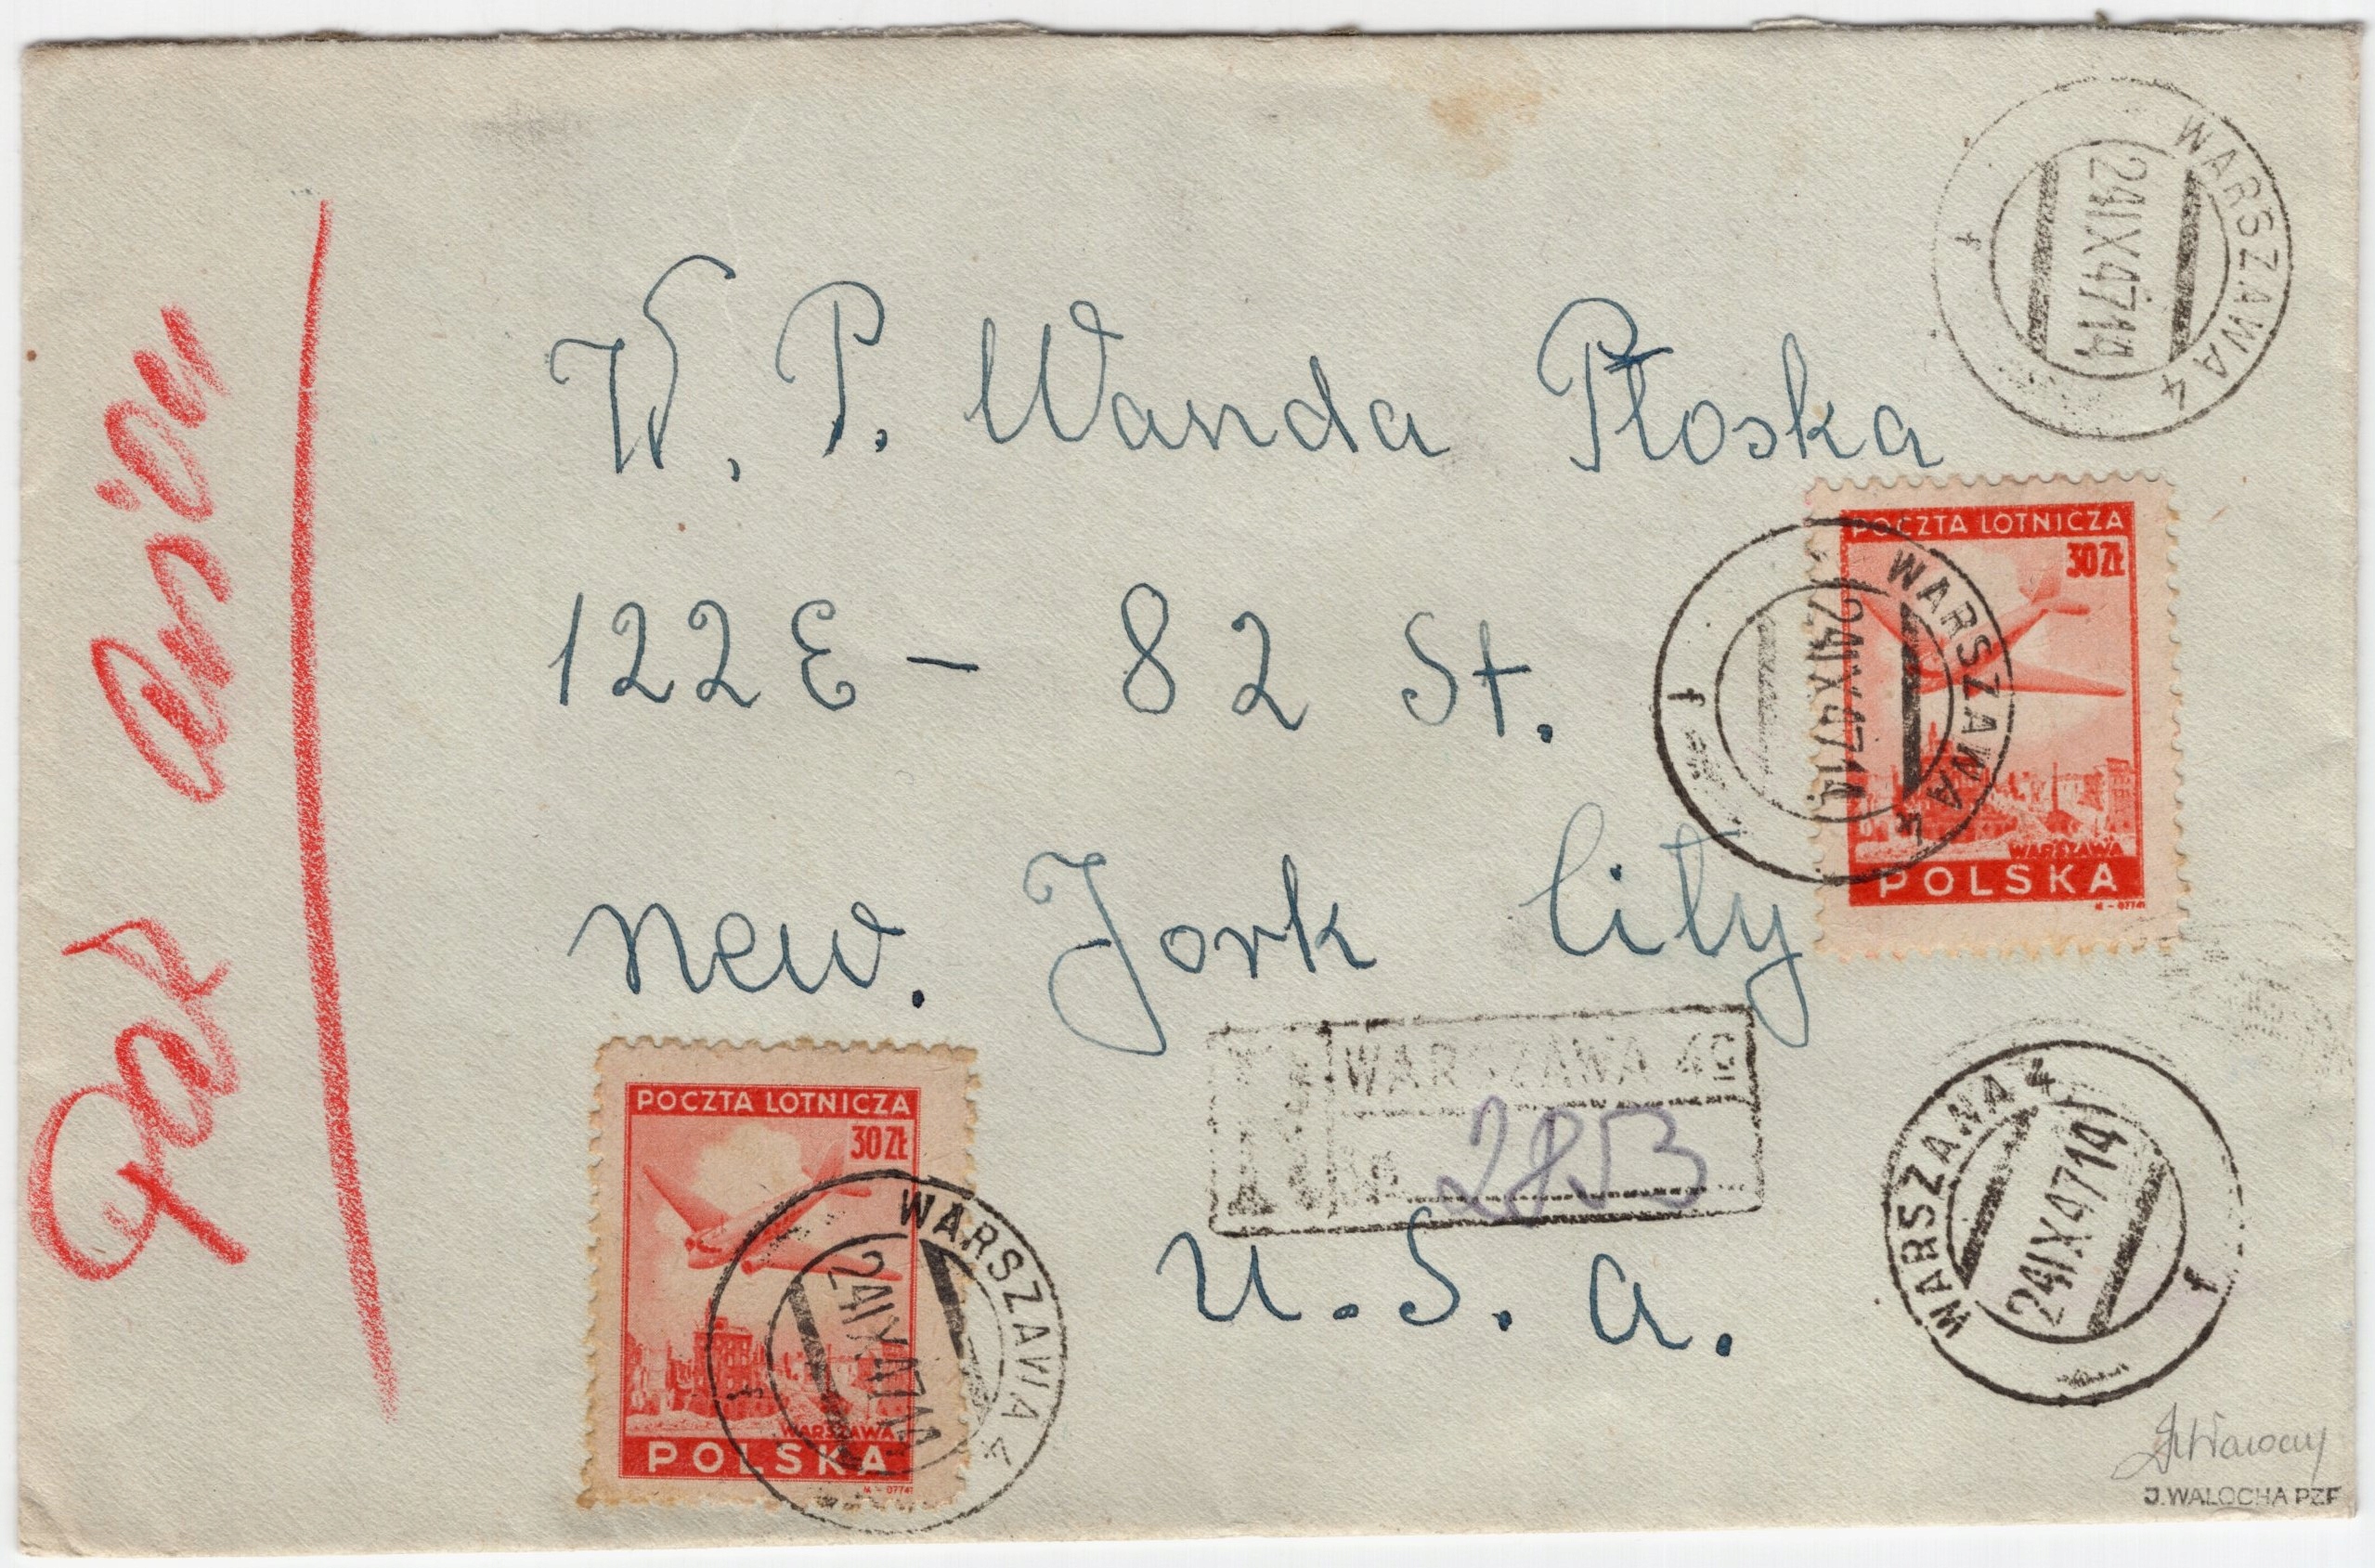 WARSZAWA 4
24 IX 47 14
f
W. P. Wanda Płoska
122 E - 82 St.
New. Jork City
U. S. A.
Par avion
POCZTA LOTNICZA
30 ZŁ
WARSZAWA
POLSKA
M - 07741
WARSZAWA 4
24 IX 47 14
f
WARSZAWA 4
No 2853
POCZTA LOTNICZA
30 ZŁ
WARSZAWA
POLSKA
M - 07741
WARSZAWA 4
24 IX 47 14
f
WARSZAWA 4
24 IX 47 14
f
J. WALOCHA PZF